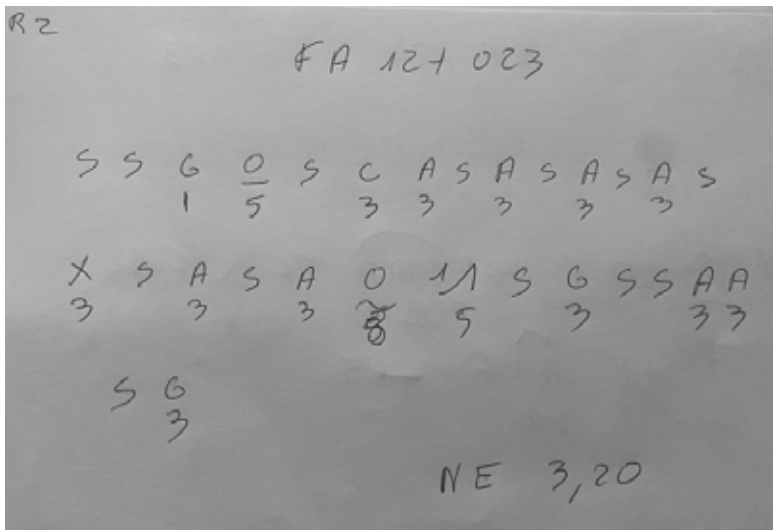 R2
FA 127 023
S S G O S C A S A S A S A S
1 5 3 3 3 3 3
X S A S A O 11 S G S S A A
3 3 3 8 5 3 3 3
S G
3
NE 3,20